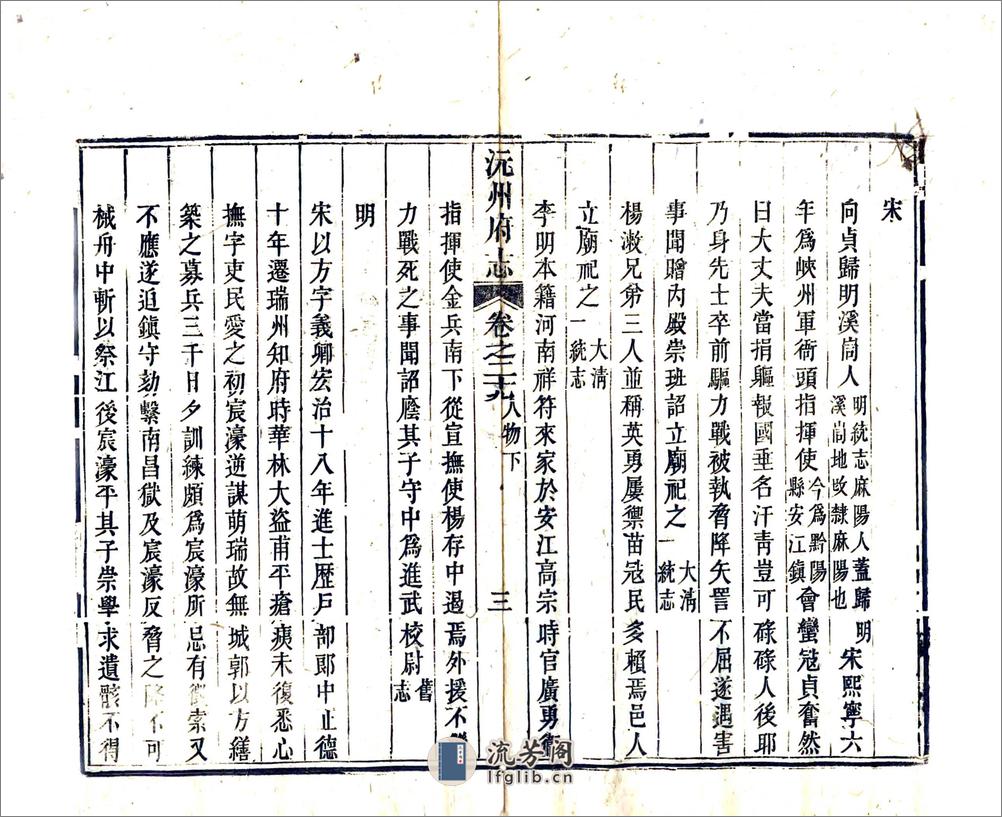 宋
向貞歸明溪峝人明統志麻陽人蓋歸明溪峝地改隸麻陽也宋熙寧六
年爲峽州軍衙頭指揮使今爲黔陽縣安江鎮會蠻冦貞奮然
曰大丈夫當捐軀報國垂名汗靑豈可碌碌人後耶
乃身先士卒前驅力戰被執脅降矢詈不屈遂遇害
事聞贈內殿崇班詔立廟祀之大淸一統志
楊漵兄弟三人並稱英勇屢禦苗冦民多賴焉邑人
立廟祀之大淸一統志
李明本籍河南祥符來家於安江高宗時官廣勇
沅州府志 卷之二十九 人物下 三
指揮使金兵南下從宣撫使楊存中遏焉外援不
力戰死之事聞詔廕其子守中爲進武校尉舊志
明
宋以方字義卿宏治十八年進士歷戶部郞中正德
十年遷瑞州知府時華林大盜甫平瘡痍未復悉心
撫字吏民愛之初宸濠逆謀萌瑞故無城郭以方繕
築之募兵三千日夕訓練頗爲宸濠所忌有徵索又
不應遂迫鎮守劾繫南昌獄及宸濠反脅之降不可
械舟中斬以祭江後宸濠平其子崇學求遺骸不得
流芳阁
lfglib.cn